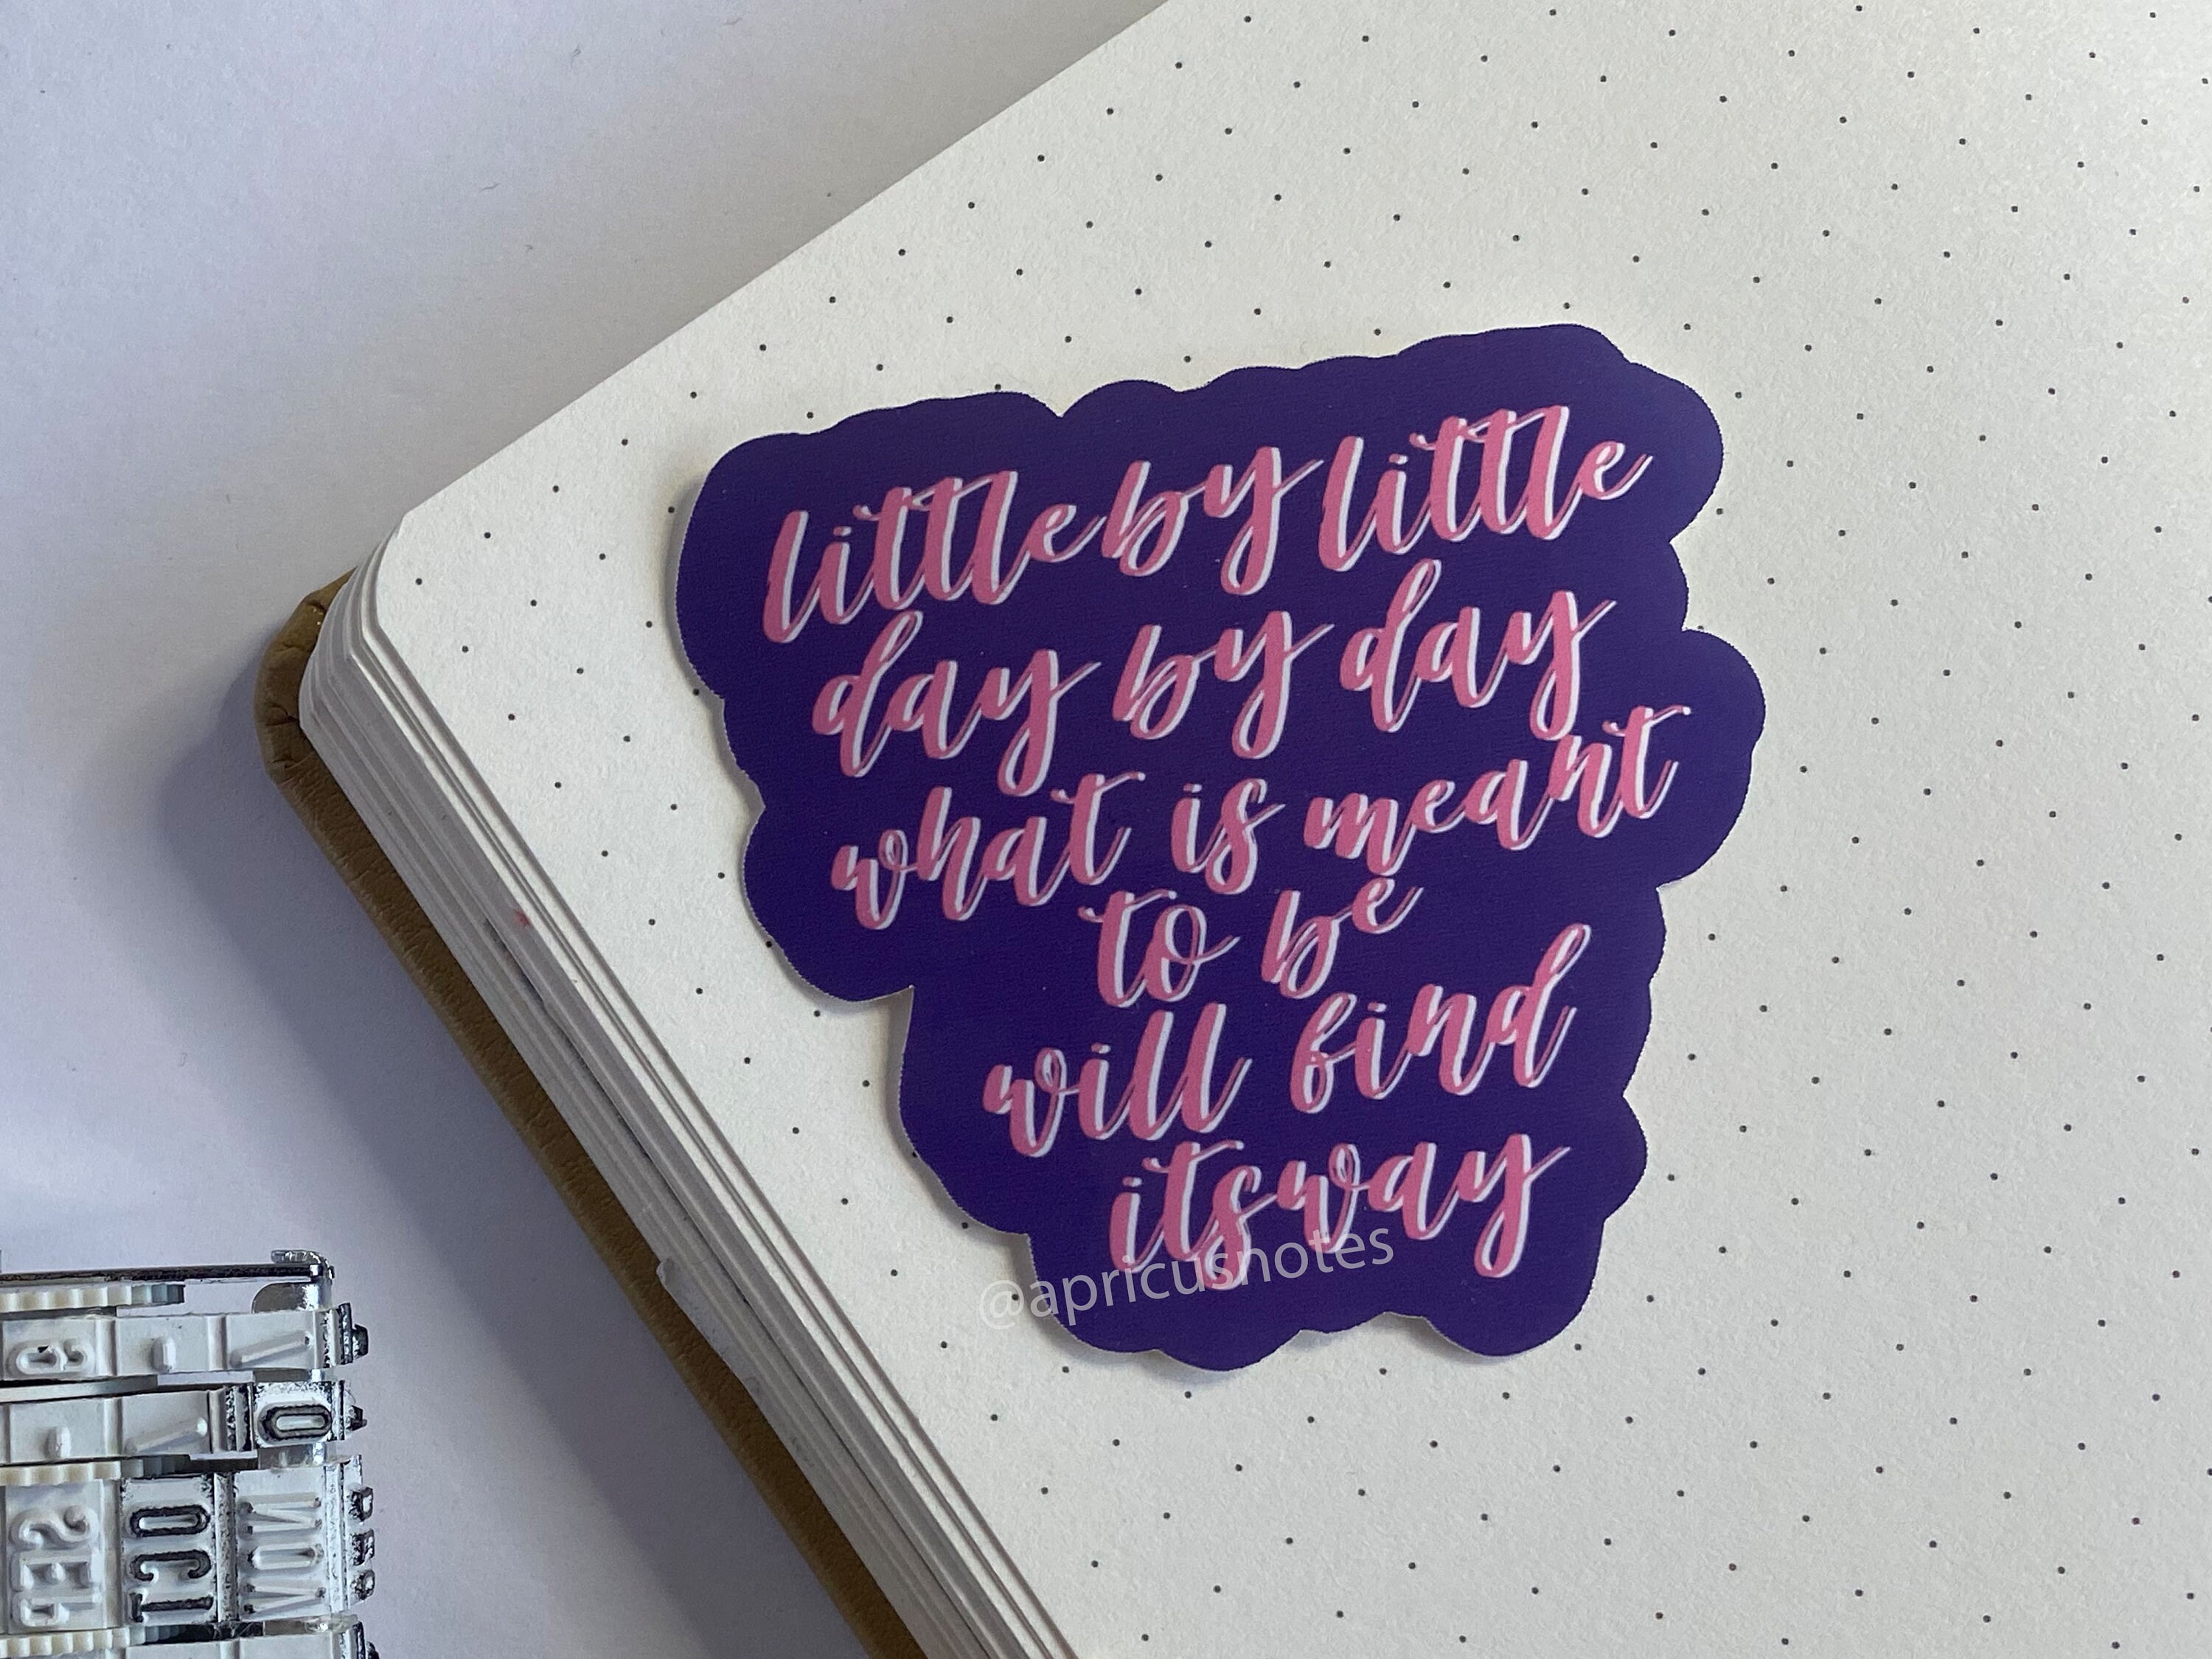 little by little
day by day
what is meant
to be
will find
its way
@apricusnotes
SEP OCT NOV